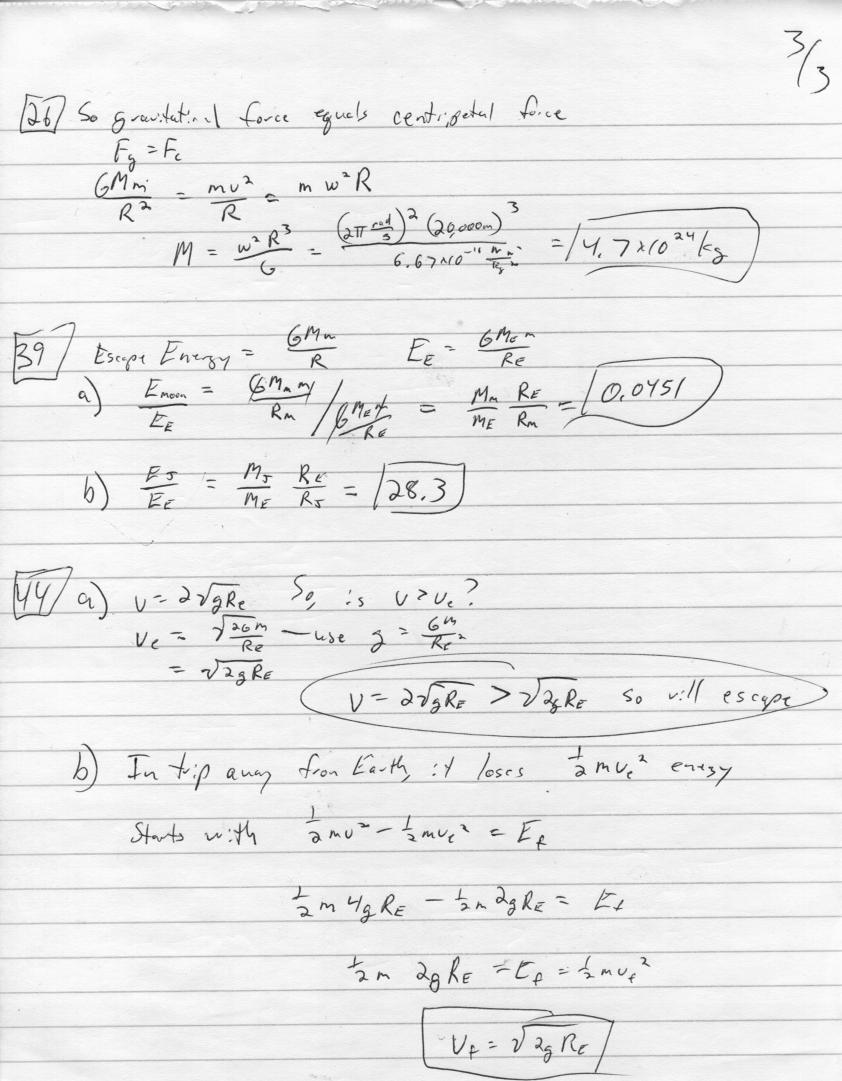 3/3
26 So gravitational force equals centripetal force
F_g = F_c
GMm/R^2 = mv^2/R = m w^2 R
M = w^2 R^3/G = (2π rad/s)^2 (20,000m)^3 / 6.67x10^-11 N m^2/kg^2 = 4.7x10^24 kg
39 Escape Energy = GMm/R E_E = GM_E m/R_E
a) E_moon/E_E = GM_m m/R_m / GM_E m/R_E = M_m/M_E R_E/R_m = 0.0451
b) E_J/E_E = M_J/M_E R_E/R_J = 28.3
44 a) v = 2√gR_e So, is v > v_e?
v_e = √2Gm/R_e — use g = Gm/R_E^2
= √2gR_E
v = 2√gR_E > √2gR_E so will escape
b) In trip away from Earth, it loses 1/2 mv_e^2 energy
Starts with 1/2 mv^2 - 1/2 mv_e^2 = E_f
1/2 m 4gR_E - 1/2 m 2gR_E = E_f
1/2 m 2gR_E = E_f = 1/2 mv_f^2
v_f = √2gR_E